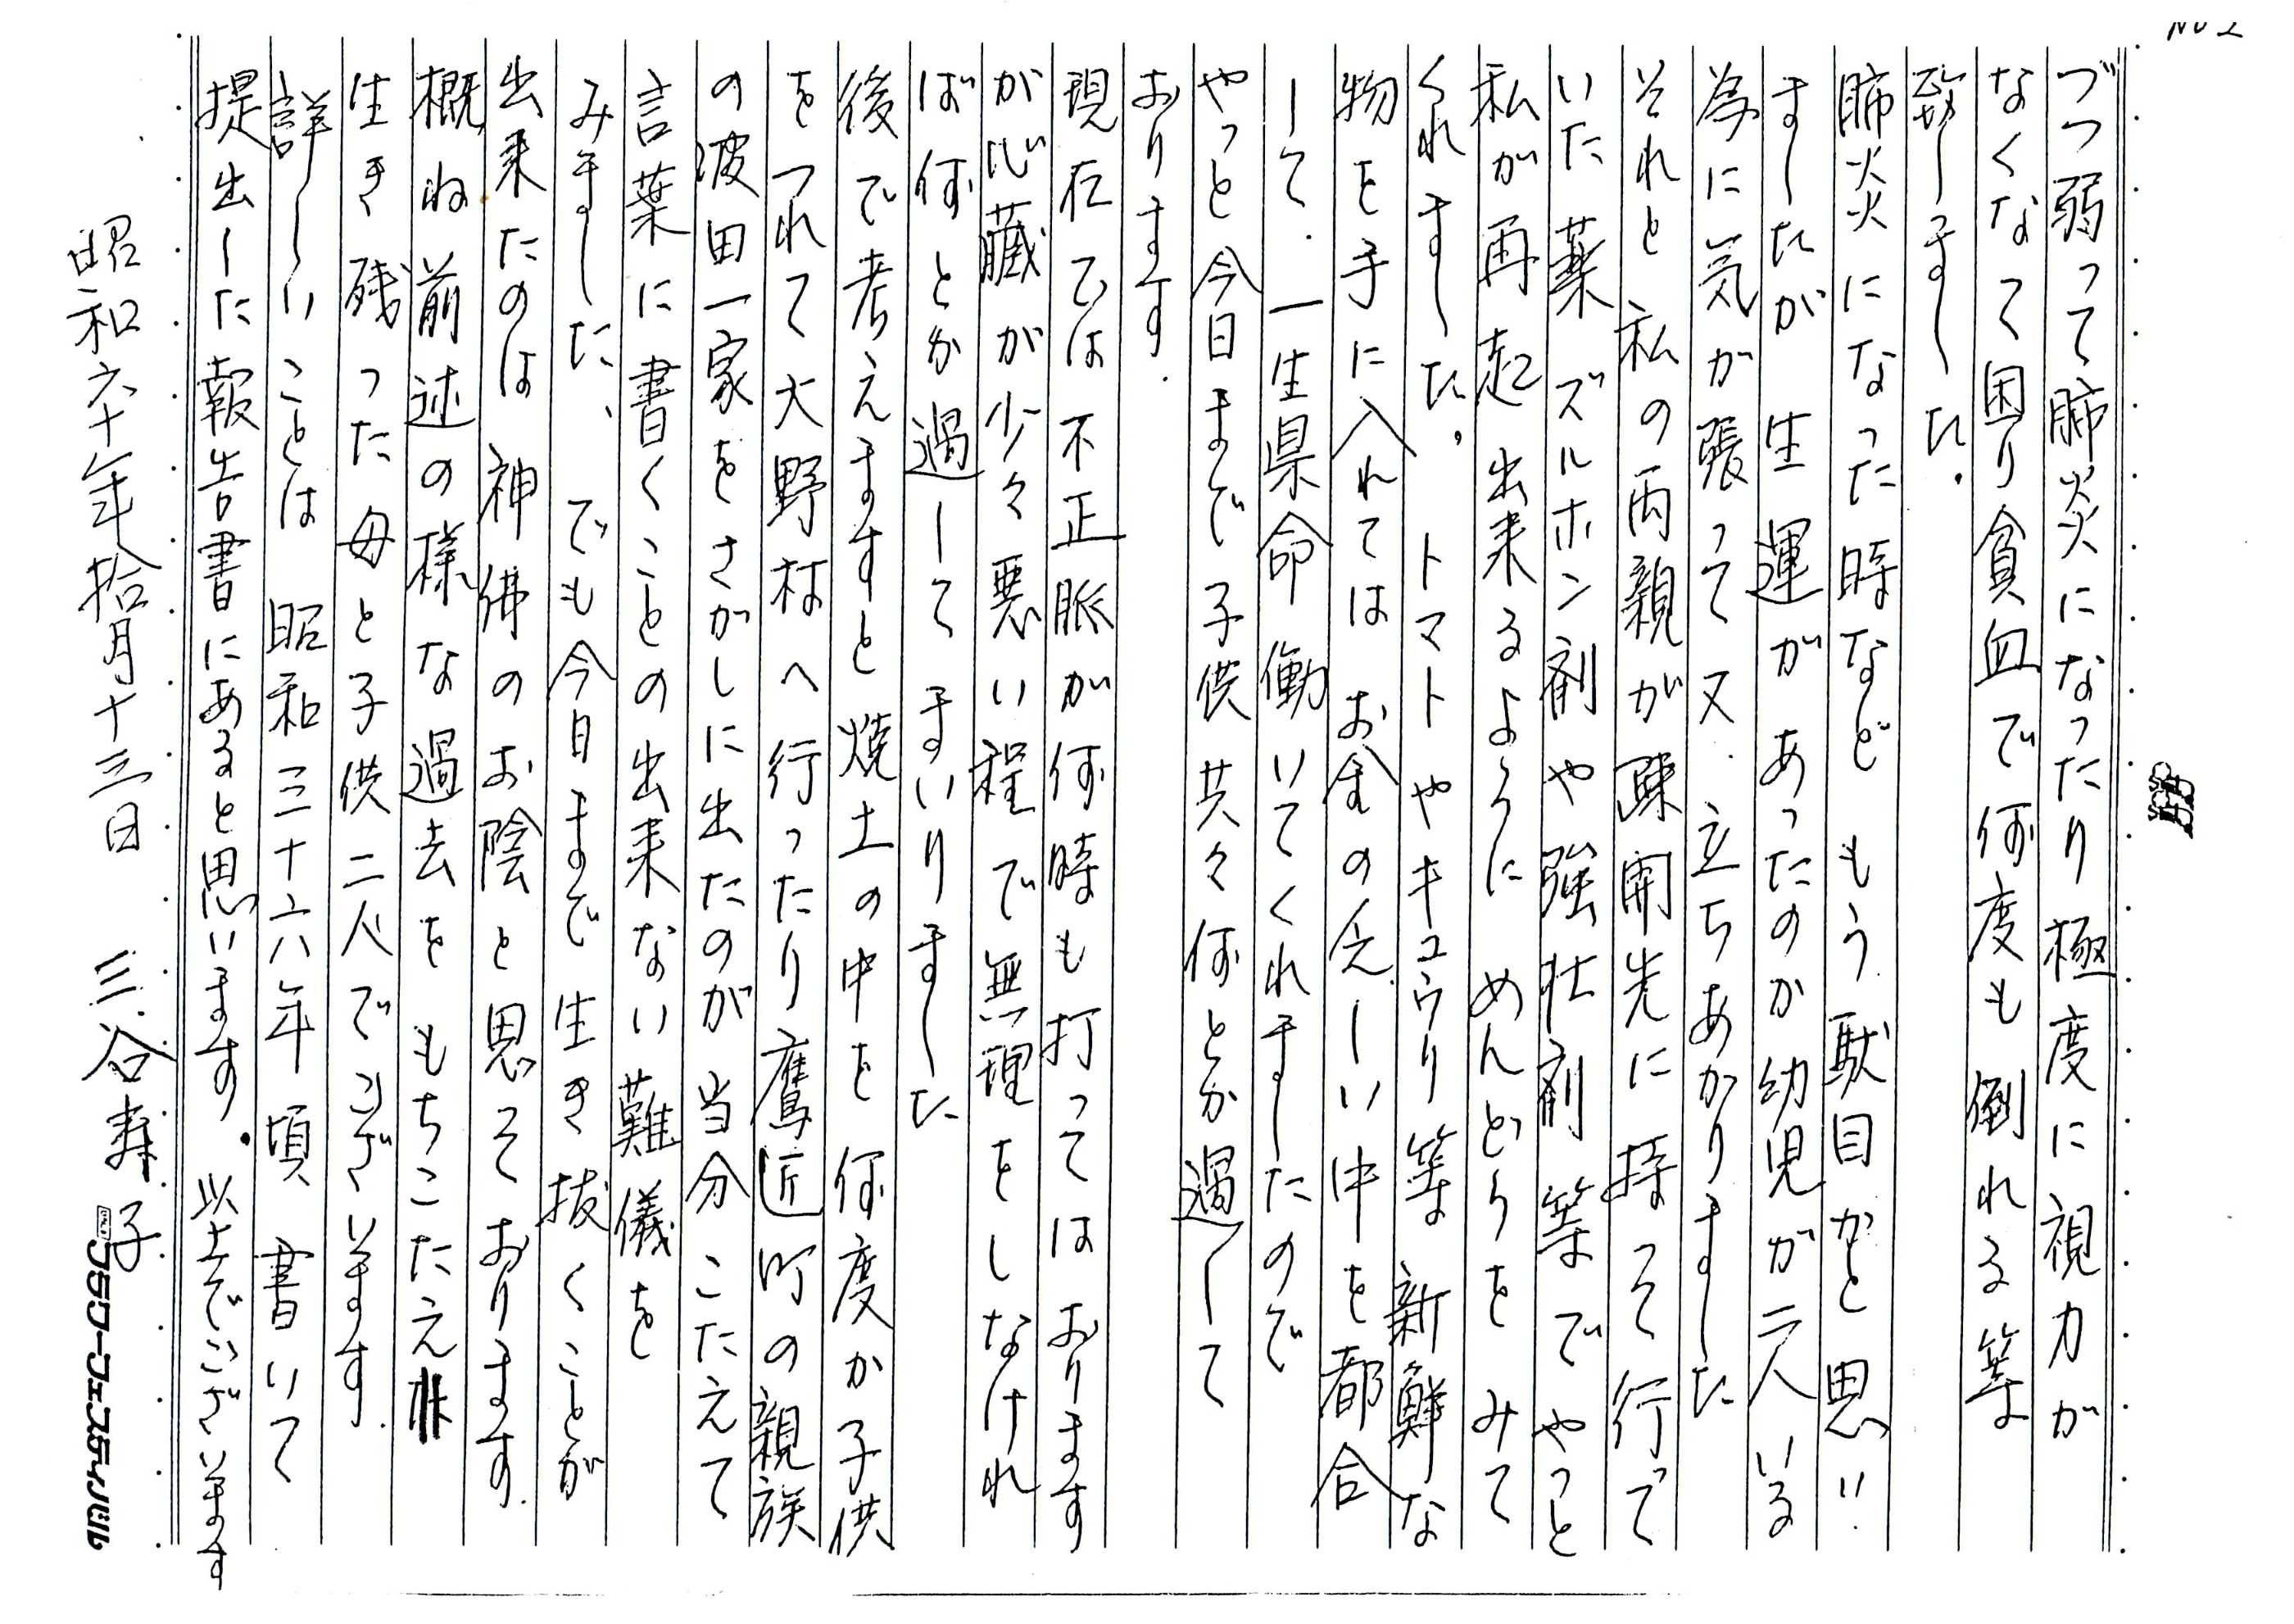 No 2
づつ弱って肺炎になったり極度に視力が
なくなて困り貧血で何度も倒れる等
致しました。
肺炎になった時などもう駄目かと思い
ましたが生運があったのか幼児が二人いる
為に気が張って又、立ちあがりました
それと私の両親が疎開先に持って行って
いた薬ズルホン剤や強壮剤等でやっと
私が再起出来るようにめんどうをみて
くれました。トマトやキュウリ等新鮮な
物を手に入れてはお金の乏しい中を都合
して、一生県命働いてくれましたので
やっと今日まで子供共々何とか過して
おります。
現在では不正脈が何時も打ってはおります
が心臓が少々悪い程で無理をしなけれ
ば何とか過してまいりました
後で考えますと焼土の中を何度か子供
をつれて大野村へ行ったり鷹匠町の親族
の波田一家をさがしに出たのが当分こたえて
言葉に書くことの出来ない難儀を
みました、でも今日まで生き抜くことが
出来たのは神佛のお陰と思っております。
概ね前述の様な過去をもちこたえ
生き残った母と子供二人でございます。
詳しいことは昭和三十六八年頃書いて
提出した報告書にあると思います。以上でございます
昭和六十年拾月十三日 三谷寿子
フラワーフェスティバル